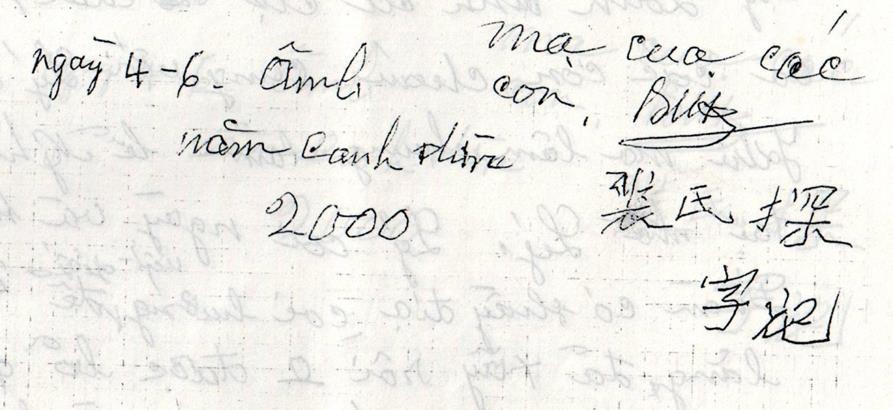 ngày 4-6. âm l,
năm canh thìn
2000
mạ của các
con,
裴氏探
字記